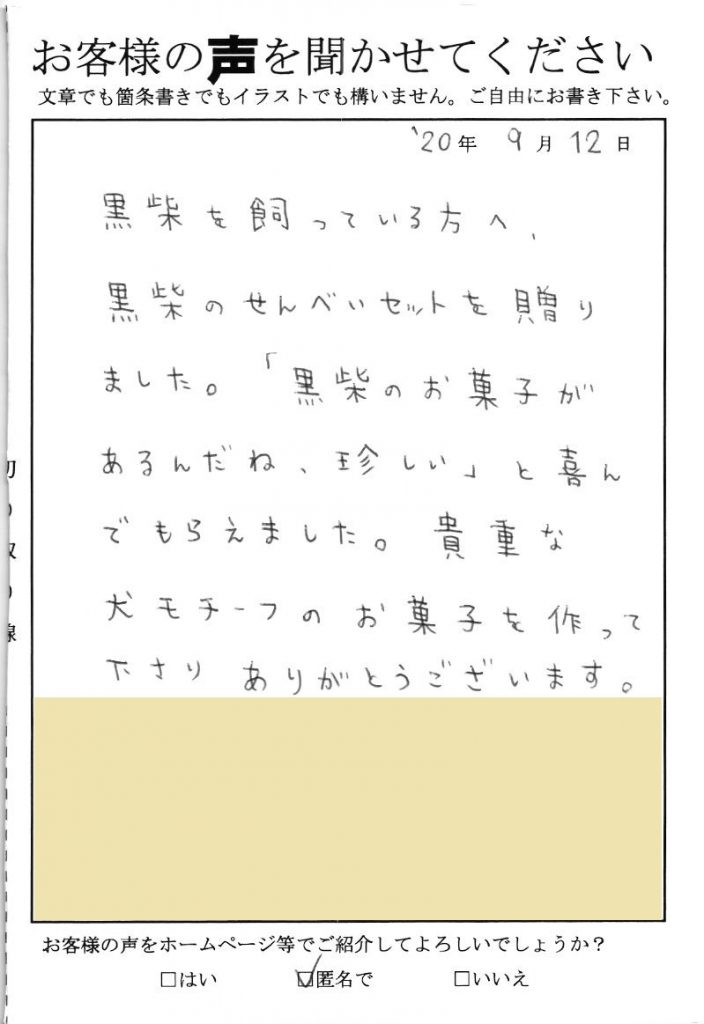 お客様の声を聞かせてください
文章でも箇条書きでもイラストでも構いません。ご自由にお書き下さい。
'20年 9月 12日
黒柴を飼っている方へ、
黒柴のせんべいセットを贈り
ました。「黒柴のお菓子が
あるんだね、珍しい」と喜ん
でもらえました。貴重な
犬モチーフのお菓子を作って
下さり ありがとうございます。
お客様の声をホームページ等でご紹介してよろしいでしょうか？
□はい ☑匿名で □いいえ